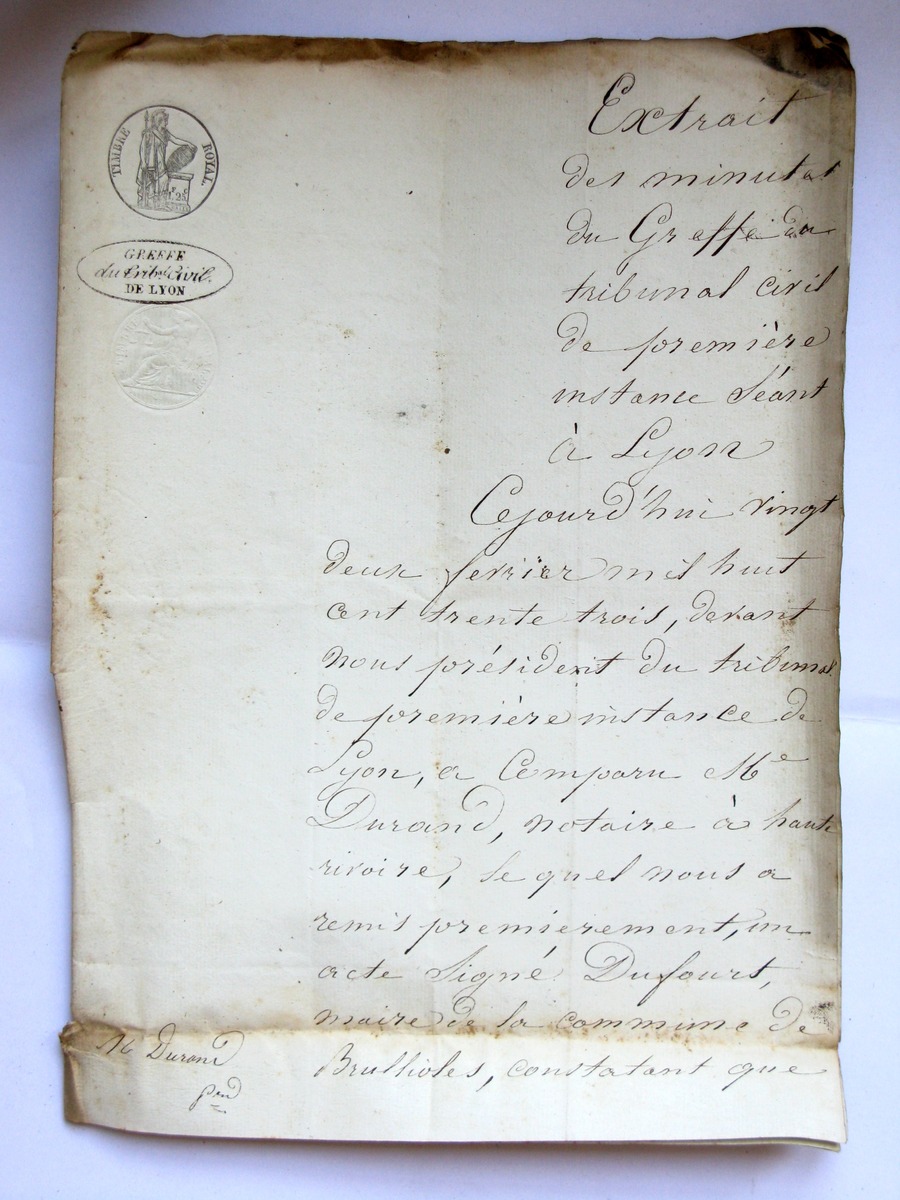 TIMBRE ROYAL.
GREFFE
du tribal Civil.
DE LYON
Extrait
des minutes
du Greffe du
tribunal civil
de première
instance Séant
à Lyon
Cejourd'hui vingt
deux fevrier mil huit
cent trente trois, devant
nous président du tribunal
de première instance de
Lyon, a Comparu Me
Durand, notaire à haute
rivoire, le quel nous a
remis premierement, un
acte Signé Dufourt,
maire de la commune de
Brullioles, constatant que
Durand